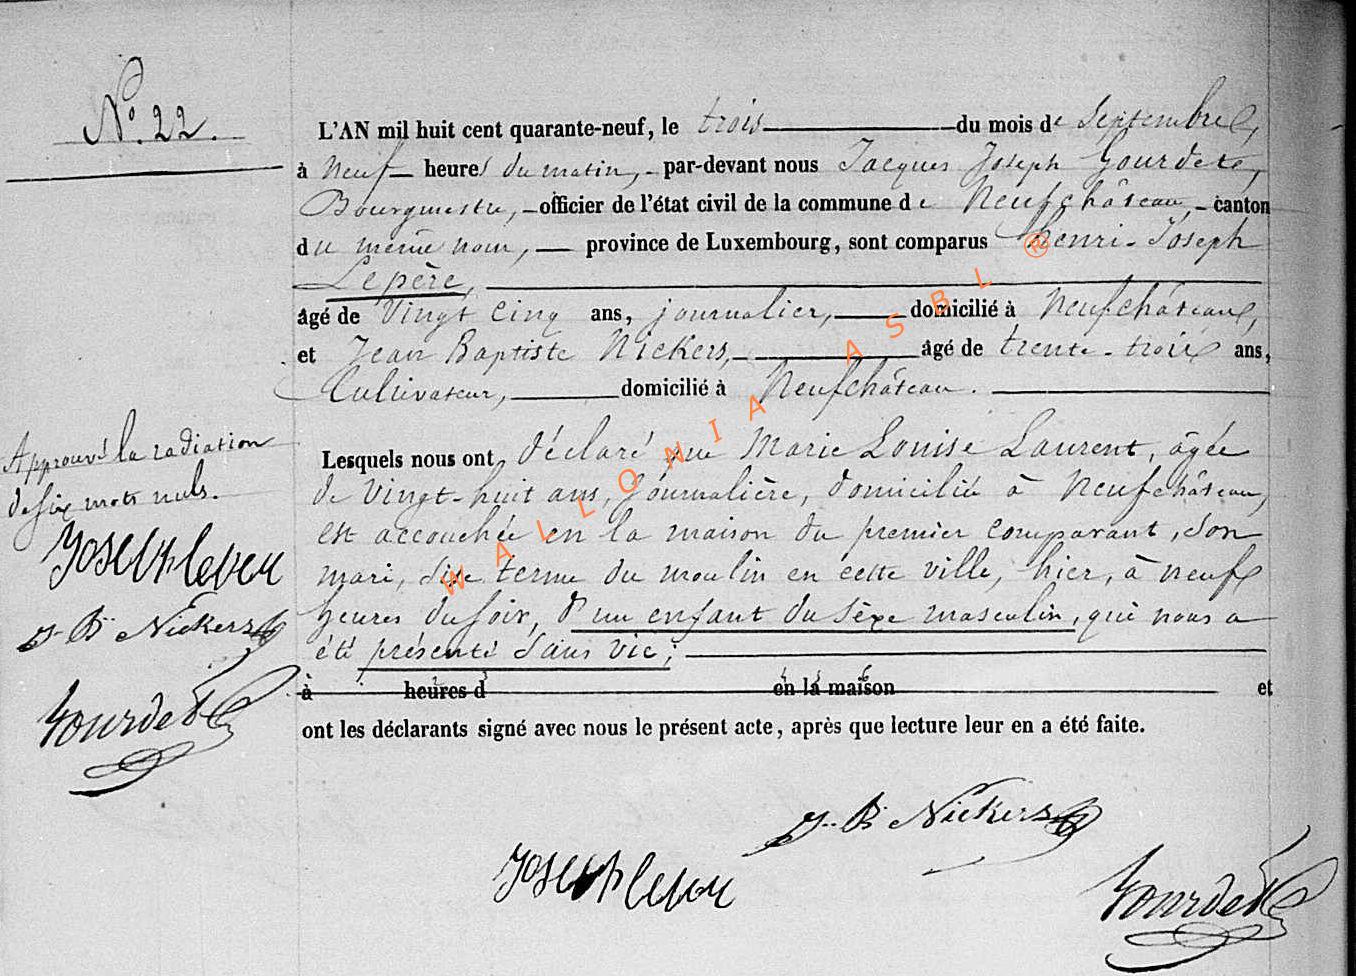 N.° 22.
L'AN mil huit cent quarante-neuf, le trois du mois de Septembre,
à neuf heures du matin, par-devant nous Jacques Joseph Gourdet,
Bourgmestre, officier de l'état civil de la commune de Neufchâteau, canton
du même nom, province de Luxembourg, sont comparus Henri-Joseph
Lepère,
âgé de Vingt cinq ans, journalier, domicilié à Neufchâteau,
et Jean Baptiste Nickers, âgé de trente-trois ans,
Cultivateur, domicilié à Neufchâteau.
Lesquels nous ont déclaré que Marie Louise Laurent, âgée
de Vingt-huit ans, journalière, domiciliée à Neufchâteau,
est accouchée en la maison du premier comparant, son
mari, sise terme du moulin en cette ville, hier, à neuf
heures du soir, d'un enfant du sèxe masculin, qui nous a
été présenté sans vie;
à heures d en la maison et
ont les déclarants signé avec nous le présent acte, après que lecture leur en a été faite.
Approuvé la radiation
de six mots nuls.
Joseph leper
J. B. Nickers
Gourdet
J. B. Nickers
Joseph leper
Gourdet
WALLONIA ASBL ®